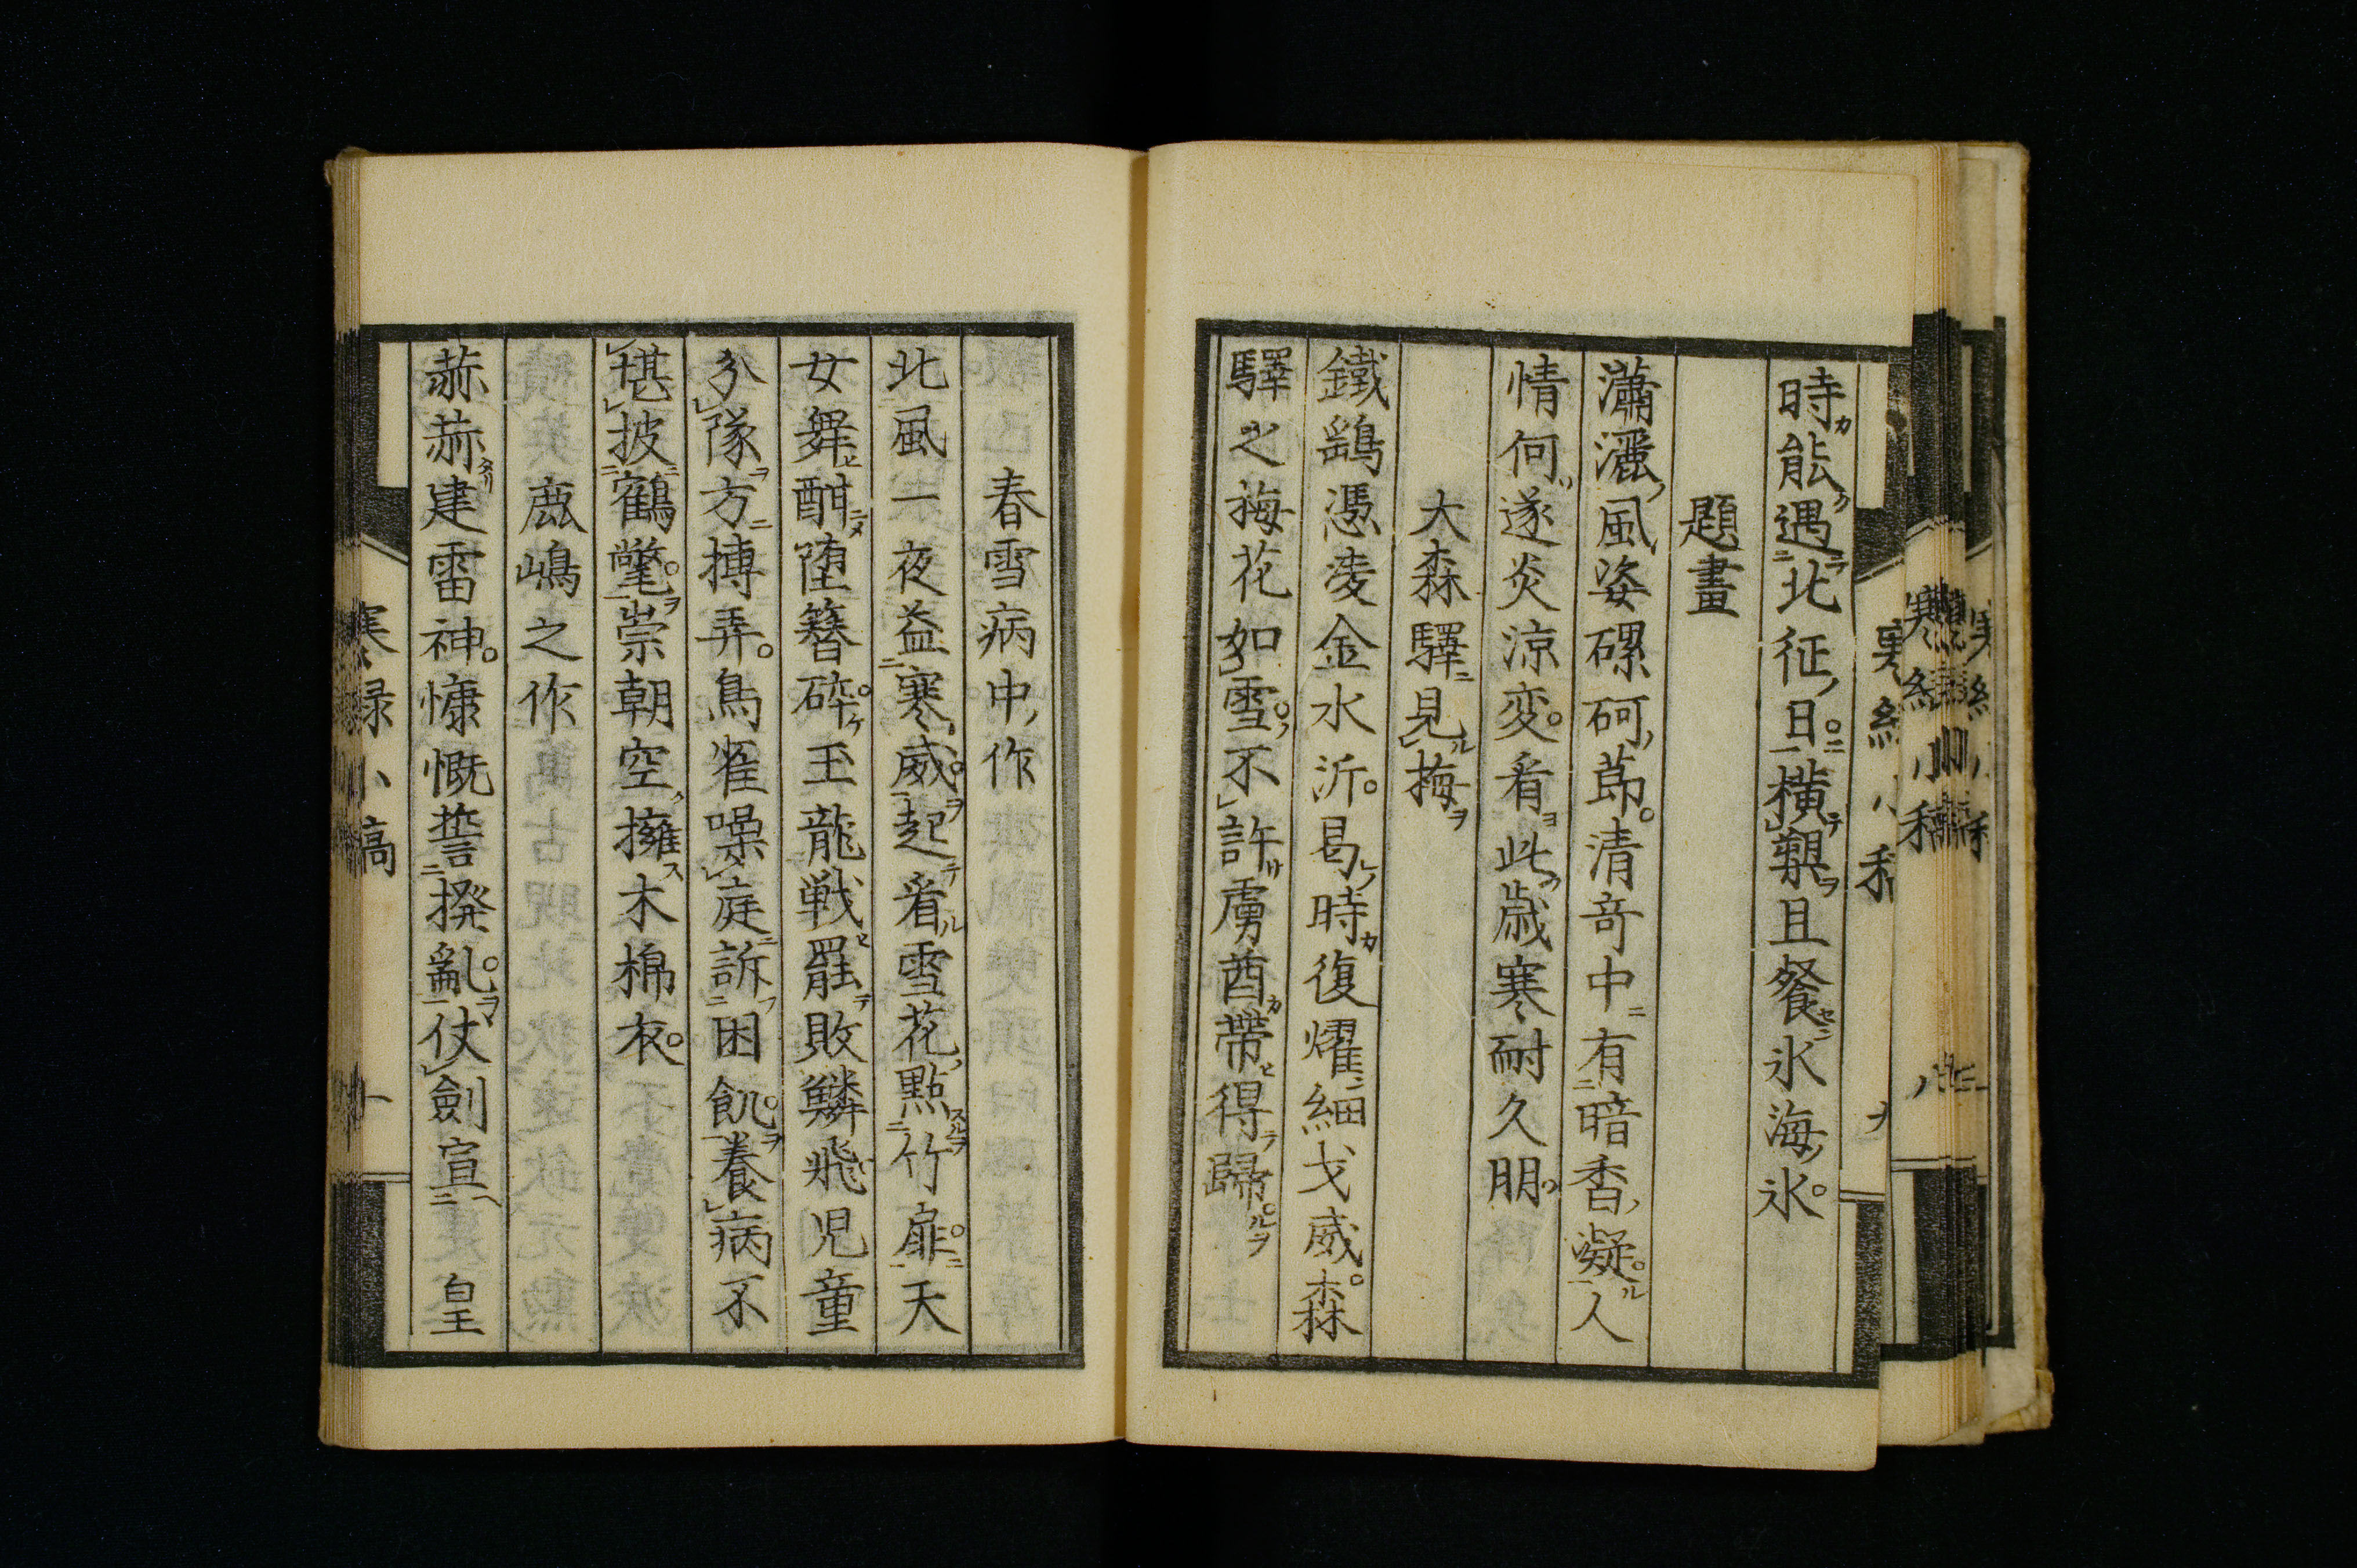 時能遇北征日横槊且餐氷海氷
題畫
瀟灑風姿磥砢節清竒中有暗香凝人
情何遂炎涼変看此歳寒耐久朋
大森驛見梅
鐵鷁憑凌金水沂曷時復耀細戈威森
驛之梅花如雪不許虜酋帶得歸
春雪病中作
北風一夜益寒威起看雪花點竹扉天
女舞酣堕簪砕玉龍戦罷敗鱗飛児童
分隊方摶弄鳥雀噪庭訴困飢養病不
堪披鶴氅崇朝空擁木棉衣
鹿嶋之作
赫赫建雷神慷慨誓撥亂仗劍宣皇
寒緑小稿